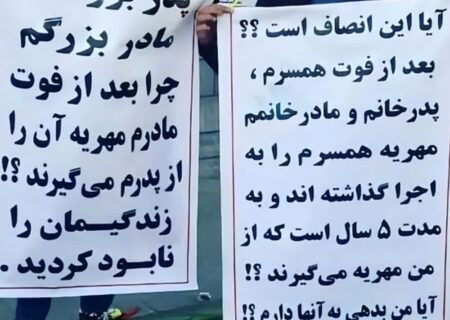 آیا این انصاف است ؟؟
بعد از فوت همسرم ،
پدرخانم و مادرخانمم
مهریه همسرم را به
اجرا گذاشته اند و به
مدت ۵ سال است که از
من مهریه می‌گیرند ؟!
آیا من بدهی به آنها دارم ؟!
مادر بزرگم
چرا بعد از فوت
مادرم مهریه آن را
از پدرم می‌گیرند ؟!
زندگیمان را
نابود کردید .